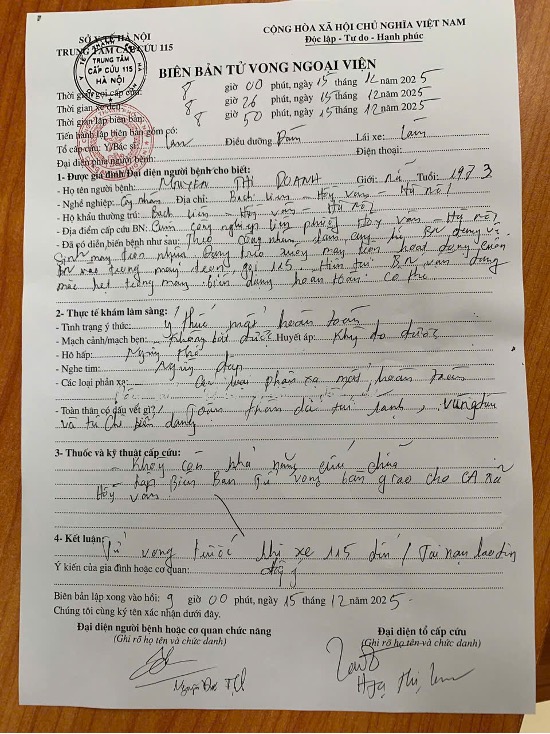 SỞ Y TẾ HÀ NỘI
TRUNG TÂM CẤP CỨU 115
CỘNG HÒA XÃ HỘI CHỦ NGHĨA VIỆT NAM
Độc lập - Tự do - Hạnh phúc
TRUNG TÂM
CẤP CỨU 115
HÀ NỘI
BIÊN BẢN TỬ VONG NGOẠI VIỆN
Thời gian gọi cấp cứu: 8 giờ 00 phút, ngày 15 tháng 12 năm 2025
Thời gian xe đến: 8 giờ 26 phút, ngày 15 tháng 12 năm 2025
Thời gian lập biên bản: 8 giờ 50 phút, ngày 15 tháng 12 năm 2025
Tiến hành lập biên bản gồm có:
Tổ cấp cứu: Y, Bác sĩ: Lan Điều dưỡng Lái xe:
Đại diện phía người bệnh: Điện thoại:
1- Được gia đình/Đại diện người bệnh cho biết:
- Họ tên người bệnh: Nguyễn Thị DOANH Giới: nữ Tuổi: 1973
- Nghề nghiệp: Công nhân Địa chỉ: Bạch Liên - - Hà Nội
- Hộ khẩu thường trú: Bạch Liên - - Hà Nội
- Địa điểm cấp cứu BN: Cụm công nghiệp - Hà Nội
- Đã có diễn biến bệnh như sau: Theo công nhân làm cùng BN đang vệ
sinh máy đùn nhựa máy hoạt động cuốn
BN vào trong máy đùn, gọi 115. Hiện tại BN vẫn đang
mắc kẹt trong máy biến dạng hoàn toàn cơ thể
2- Thực tế khám lâm sàng:
- Tình trạng ý thức: Ý thức mất hoàn toàn
- Mạch cảnh/mạch bẹn: Không bắt được Huyết áp: Không đo được
- Hô hấp: Ngừng thở
- Nghe tim: Ngừng đập
- Các loại phản xạ: Các loại phản xạ mất hoàn toàn
- Toàn thân có dấu vết gì? Toàn thân lạnh, vùng đầu
và tứ chi biến dạng
3- Thuốc và kỹ thuật cấp cứu:
- Không còn khả năng cứu chữa
- Lập Biên Bản Tử vong bàn giao cho CA xã
4- Kết luận:
Tử vong trước khi xe 115 đến / Tai nạn lao động
Ý kiến của gia đình hoặc cơ quan: đồng ý
Biên bản lập xong vào hồi: 9 giờ 00 phút, ngày 15 tháng 12 năm 2025
Chúng tôi cùng ký tên xác nhận dưới đây.
Đại diện người bệnh hoặc cơ quan chức năng
(Ghi rõ họ tên và chức danh)
Đại diện tổ cấp cứu
(Ghi rõ họ tên và chức danh)